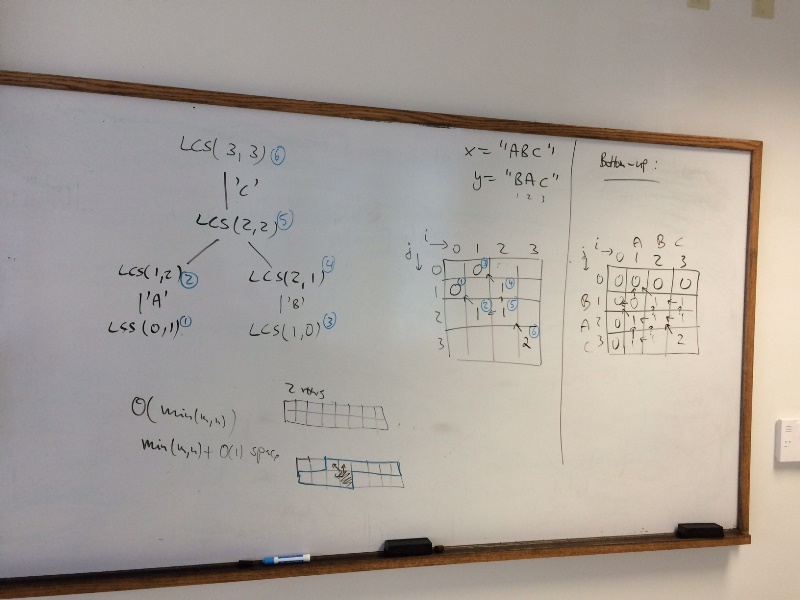 LCS(3,3) ⑥
'C'
LCS(2,2) ⑤
LCS(1,2) ②
LCS(2,1) ④
'A'
'B'
LCS(0,1) ①
LCS(1,0) ③
O(min(m,n))
min(m,n) + O(1) space
2 rows
x = "ABC"
y = "BAC"
1 2 3
i → 0 1 2 3
j ↓
0 0 ③
1 0 ① 1 ④
2 1 ② ← 1 ⑤
3 2 ⑥
Bottom-up:
A B C
i → 0 1 2 3
j ↓
0 0 0 0 0
B 1 0 0 1 ← 1
A 2 0 1 ← 1 ← 1
C 3 0 1 ← 1 2